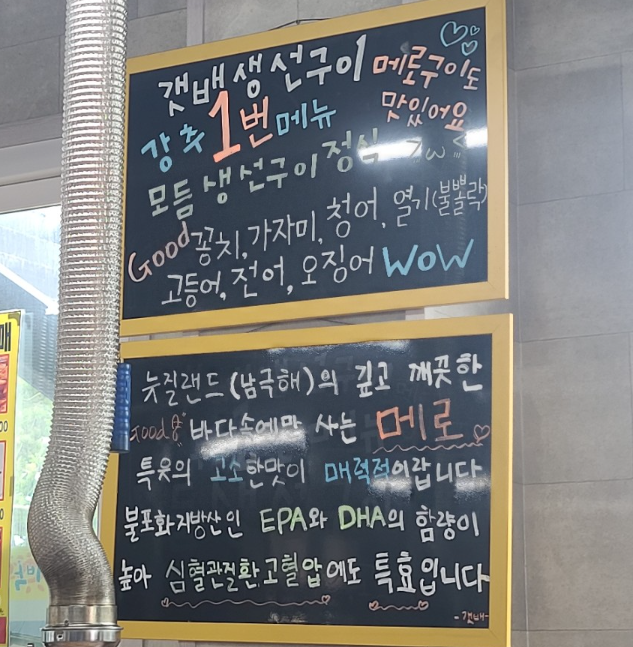 갯배 생선구이 메로구이도
맛있어요
강추 1번 메뉴
모듬 생선구이 정식
Good 꽁치, 가자미, 청어, 열기(불뽈락)
고등어, 전어, 오징어 WOW
뉴질랜드(남극해)의 깊고 깨끗한
Good 바다속에만 사는 메로
특유의 고소한맛이 매력적이랍니다
불포화지방산인 EPA와 DHA의 함량이
높아 심혈관질환 고혈압에도 특효입니다
-갯배-
매